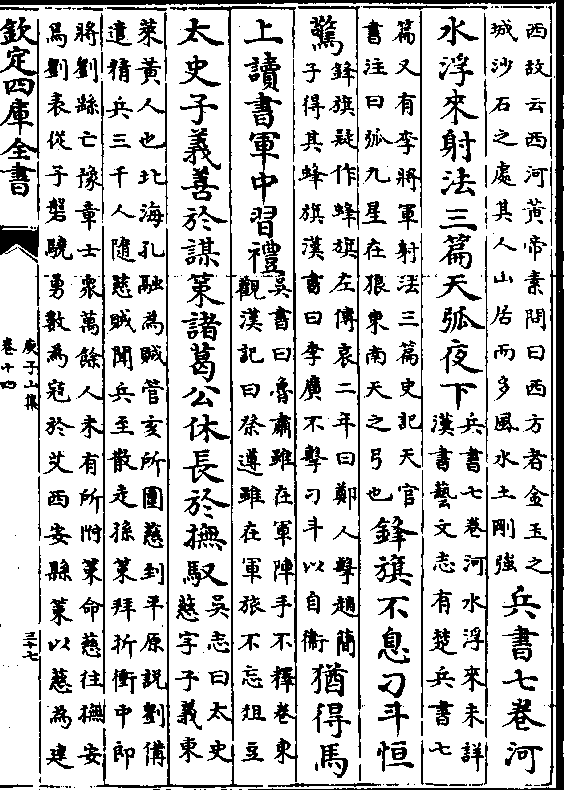 西故云西河黃帝素問曰西方者金玉之
城沙石之處其人山居而多風水土剛強
兵書七卷河
水浮來射法三篇天弧夜下
兵書七卷河水浮來未詳
漢書藝文志有楚兵書七
篇又有李將軍射法三篇史記天官
書注曰弧九星在狼東南天之弓也
鋒旗不息刁斗恒
驚
鋒旗疑作蜂旗左傳哀二年曰鄭人擊趙簡
子得其蜂旗漢書曰李廣不擊刁斗以自衛
猶得馬
上讀書軍中習禮
吳書曰魯肅雖在軍陣手不釋卷東
觀漢記曰祭遵雖在軍旅不忘俎豆
太史子義善於謀策諸葛公休長於撫馭
吳志曰太史
慈字子義東
萊黃人也北海孔融為賊管亥所圍慈到平原說劉備
遣精兵三千人隨慈賊聞兵至散走孫策拜折衝中郎
將劉繇亡豫章士衆萬餘人未有所附策命慈往撫安
焉劉表從子磐驍勇數為寇於艾西安縣策以慈為建
欽定四庫全書
庾子山集
卷十四
三十七